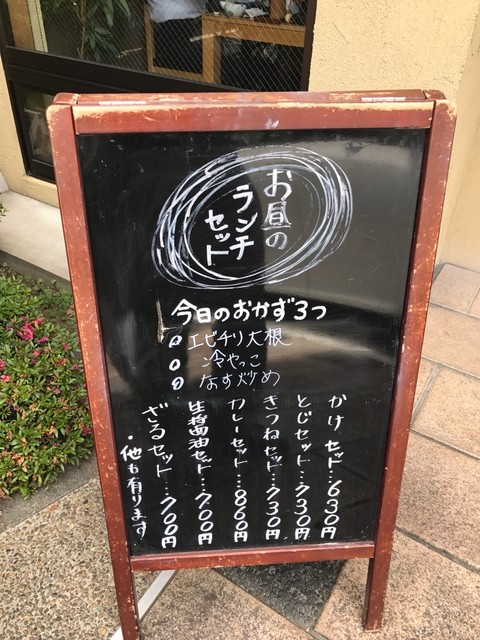 お昼の
ランチ
セット
今日のおかず3つ
エビチリ大根
冷やっこ
なす炒め
かけセット…630円
とじセット…730円
きつねセット…730円
カレーセット…860円
生醤油セット…700円
ざるセット…700円
・他も有ります